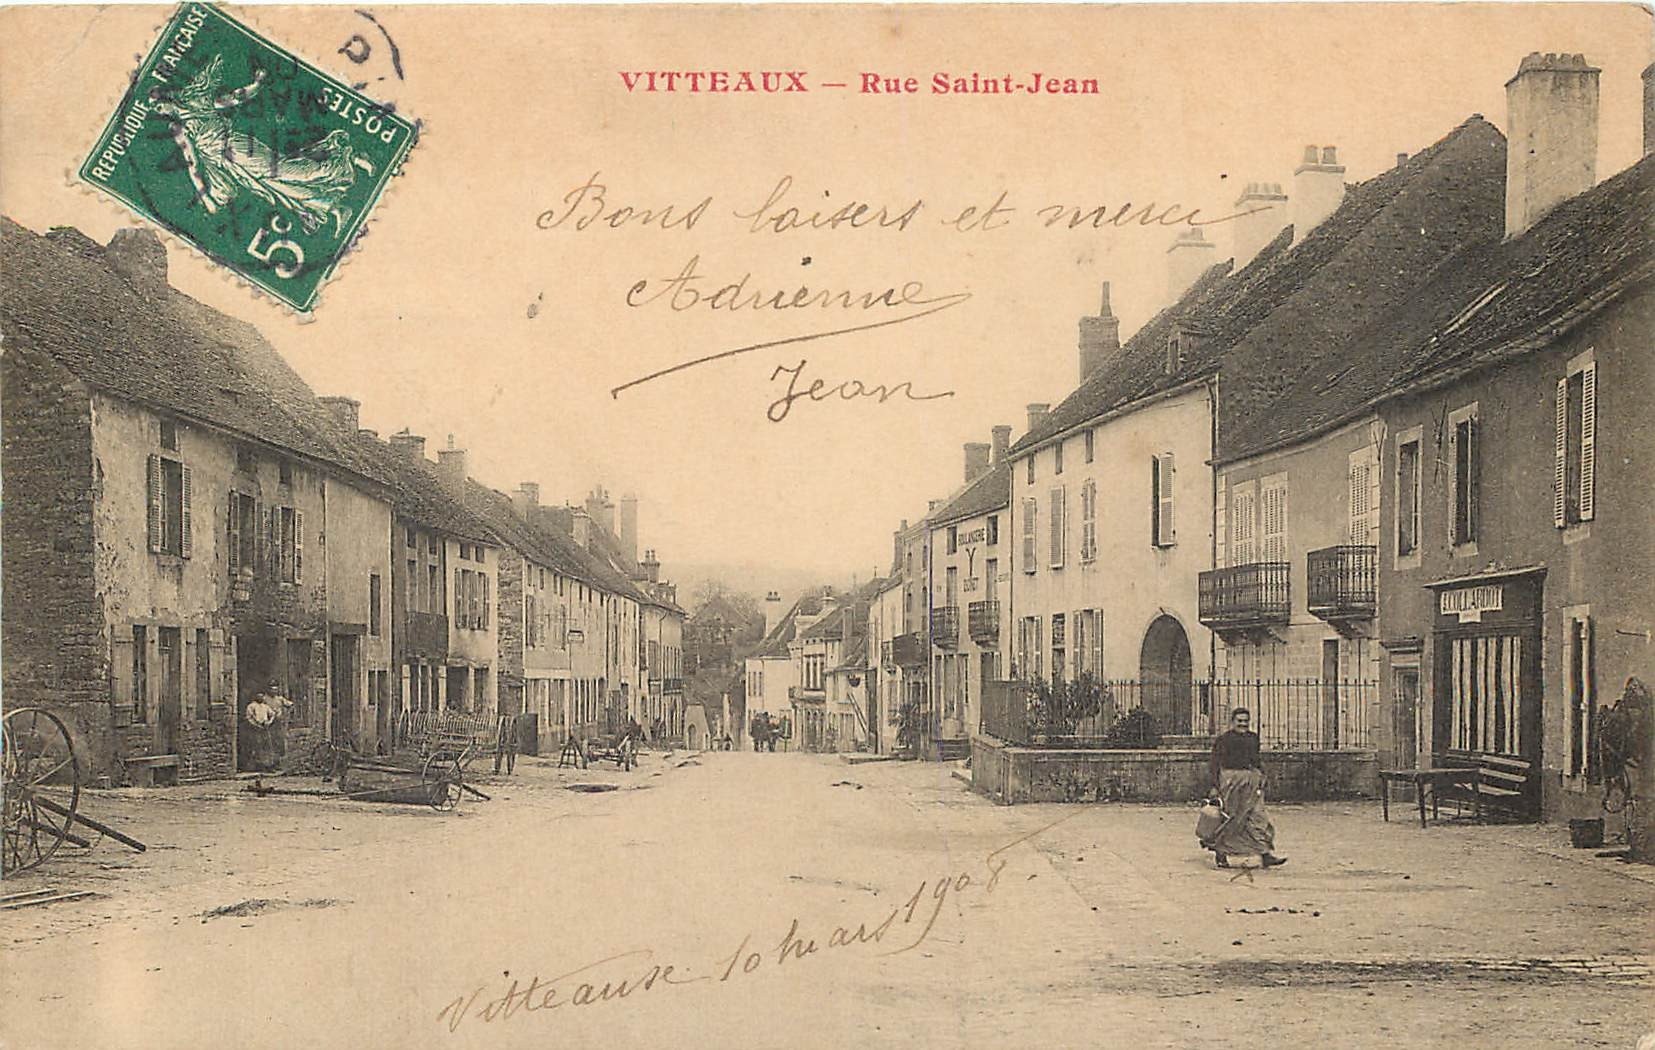 REPUBLIQUE FRANÇAISE
POSTES
5c
MARS
VITTEAUX — Rue Saint-Jean
Bons baisers et merci
Adrienne
Jean
BOULANGERIE
Vitteause 10 Mars 1908.